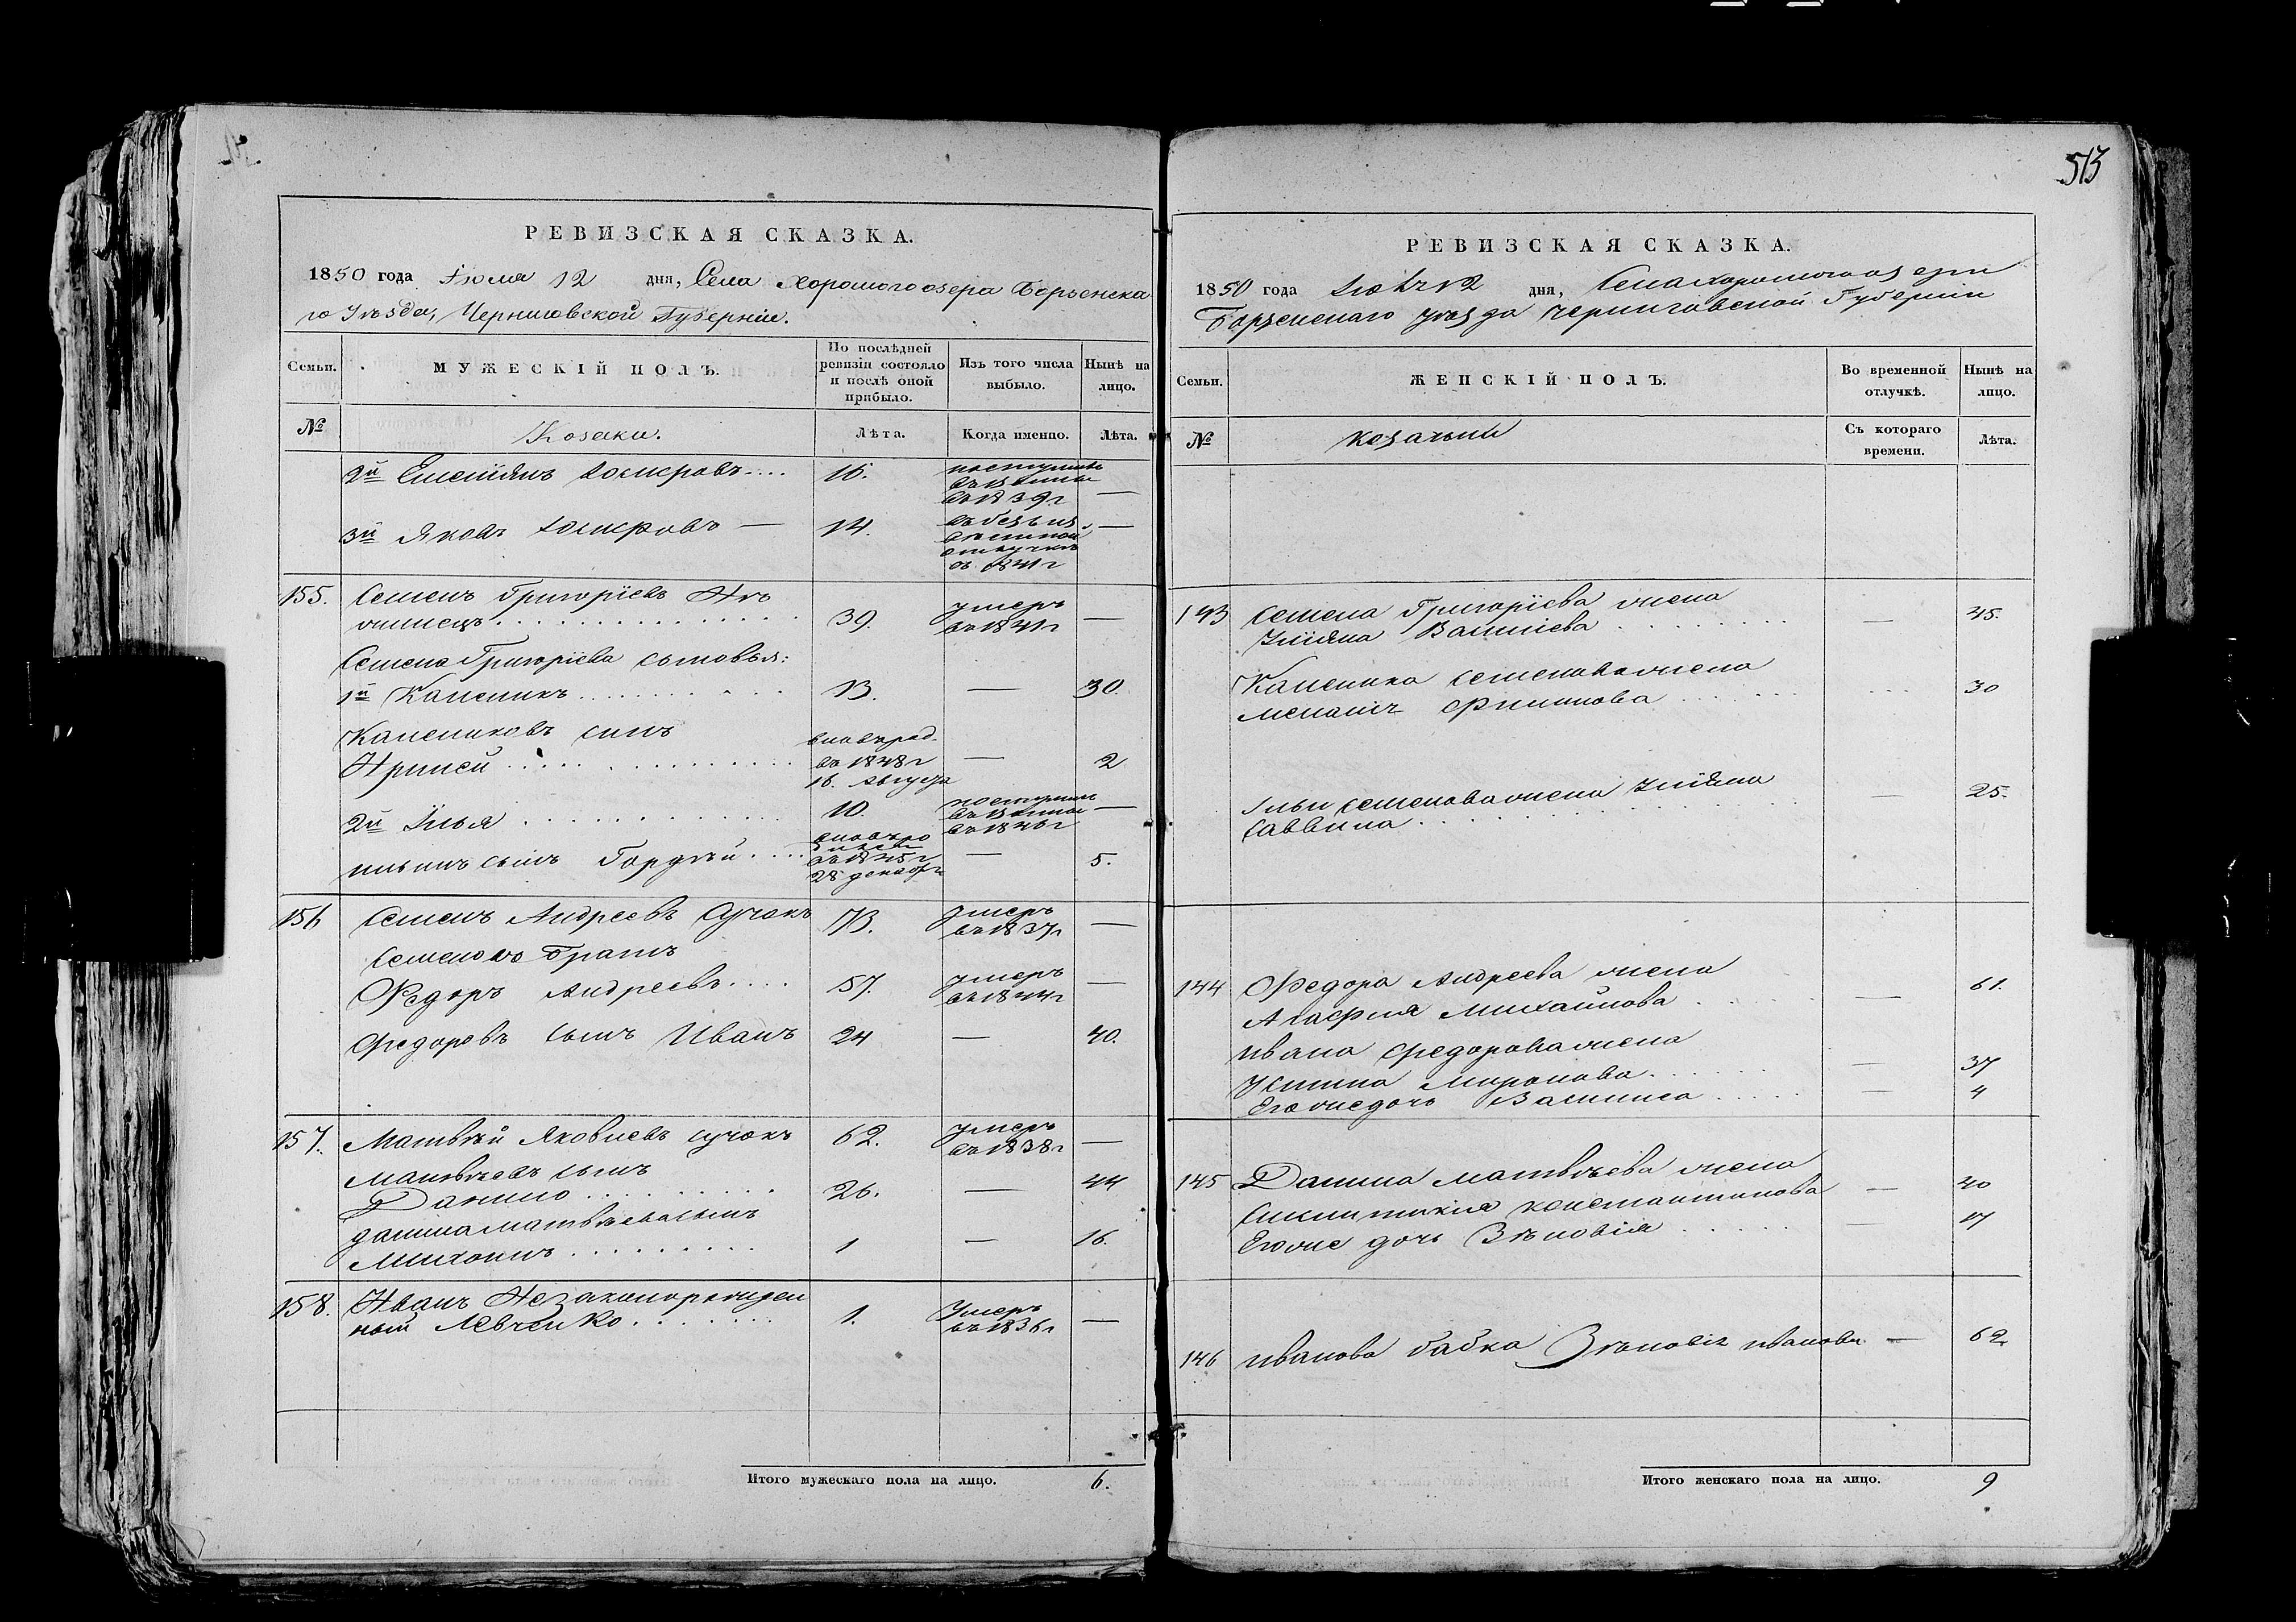 513
РЕВИЗСКАЯ СКАЗКА.
1850 года Іюля 12 дня, Села Хорошогоозера Борзенска
го Уѣзда, Черниговской Губерніи.
Семьи.
МУЖЕСКІЙ ПОЛЪ.
По послѣдней ревизіи состояло и послѣ оной прибыло.
Изъ того числа выбыло.
Нынѣ на лицо.
№
Козаки.
Лѣта.
Когда именно.
Лѣта.
2й Емельянъ 16. поступилъ
въ 1839г —
3й Яковъ — 14. —
отлучкѣ
съ 1841г
155. Семенъ Григоріевъ
39. умеръ
въ 1841г —
Семена Григоріева сыновья:
1й Каленикъ 13. — 30.
Калениковъ сынъ
вновьрод.
въ 1848г
16. августа
— 2
2й Илья 10. поступилъ
въ 1846г —
ильинъ сынъ Гордѣй
вновьро
въ 1845г
28 декабря
— 5.
156 Семенъ Андреевъ Сучокъ 73. умеръ
въ 1837г —
Семеновъ братъ
Федоръ Андреевъ 57. умеръ
въ 1844г —
Федоровъ сынъ Иванъ 24 — 40.
157. Матвѣй Яковлевъ сучокъ 62. умеръ
въ 1838г —
Матвѣевъ сынъ
Данило 26. — 44
данила матвѣевасынъ
1 — 16.
158. Иванъ Незаконорожден
ный Левченко 1. Умеръ
въ 1836г —
Итого мужескаго пола на лицо. 6.
РЕВИЗСКАЯ СКАЗКА.
1850 года 12 дня, Села хорошогоозера
Борзенскаго уѣзда черниговской Губерніи
Семьи.
ЖЕНСКІЙ ПОЛЪ.
Во временной отлучкѣ.
Нынѣ на лицо.
№
козачьи
Съ котораго времени.
Лѣта.
143 Семена Григоріева жена
Уліяна Василіева — 45.
Каленика семеноважена
филипова 30
Ильи семеноважена Уліяна
Саввина — 25.
144 Федора Андреева жена
Агафия михайлова — 61.
ивана федороважена
Устина миронова — 37
Егожедочь Василиса — 4
145 Данила матвѣева жена
константинова — 40
Егоже дочь Зѣновія — 17
146 иванова бабка Зѣновія иванова — 62
Итого женскаго пола на лицо. 9